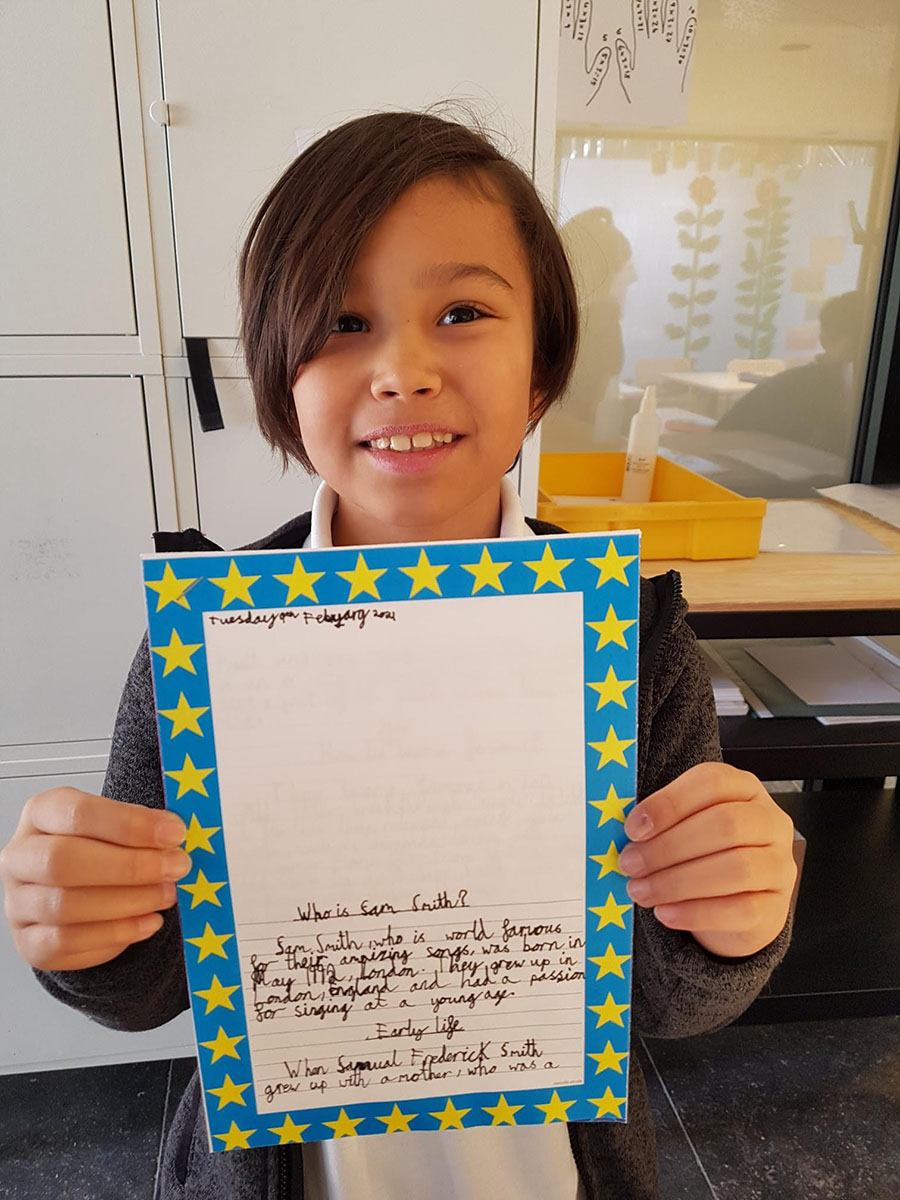 Tuesday 9th Febuyary 2021
Who is Sam Smith?
Sam Smith, who is world famous
for their amizing songs, was born in
May 1992, London. They grew up in
London, England and had a passion
for singing at a young age.
Early life
When Samual Frederick Smith
grew up with a mother, who was a